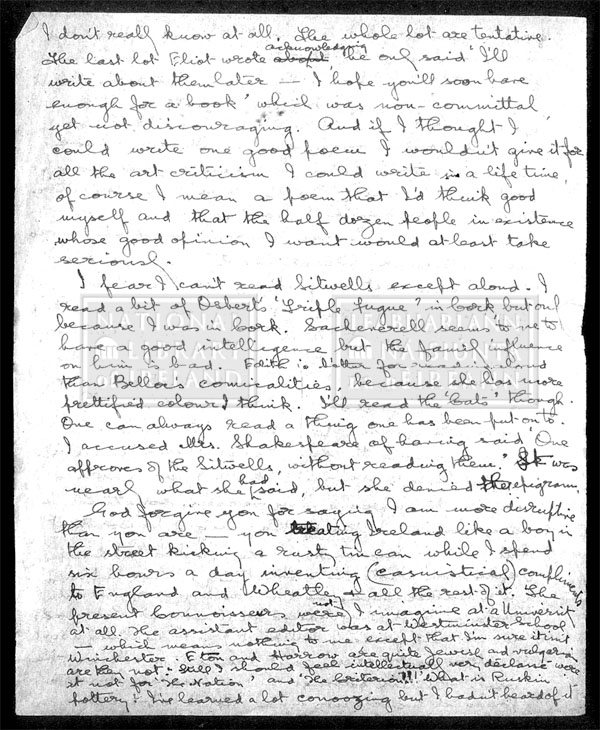 I don't really know at all. The whole lot are tentative.
The last lot Eliot wrote acknowledging he only said 'I'll
write about them later — I hope you'll soon have
enough for a book' which was non-committal
yet not discouraging. And if I thought I
could write one good poem I wouldn't give it for
all the art criticism I could write in a life time,
of course I mean a poem that I'd think good
myself and that the half dozen people in existence
whose good opinion I want would at least take
seriously.
I fear I can't read Sitwells except aloud. I
read a bit of Osbert's 'Triple Fugue' in Cork but only
because I was in Cork. Sacheverell seems to me to
have a good intelligence but the family influence
on him is bad. Edith is better for reading aloud
than Belloc's comicalities, because she has more
prettified colour I think. I'll read the 'Cats' though.
One can always read a thing one has been put on to.
I accused Mrs. Shakespeare of having said 'One
approves of the Sitwells, without reading them.' It was
nearly what she had said, but she denied the epigram.
God forgive you for saying I am more disruptive
than you are — you treating Ireland like a boy in
the street kicking a rusty tin can while I spend
six hours a day inventing (casuistical) compliments
to England and Wheatley & all the rest of it. The
present Connoisseurs were not, I imagine at a University
at all. The assistant editor was at Westminster School
— which means nothing to me except that I'm sure it isn't
Winchester. Eton and Harrow are quite Jewish and vulgar
are they not? Still I should feel intellectually very déclassé were
it not for 'The Nation' and 'The Criterion'!!! What is Ruskin
pottery? I've learned a lot but I hadn't heard of it
NATIONAL
LIBRARY
OF IRELAND
LEABHARLANN